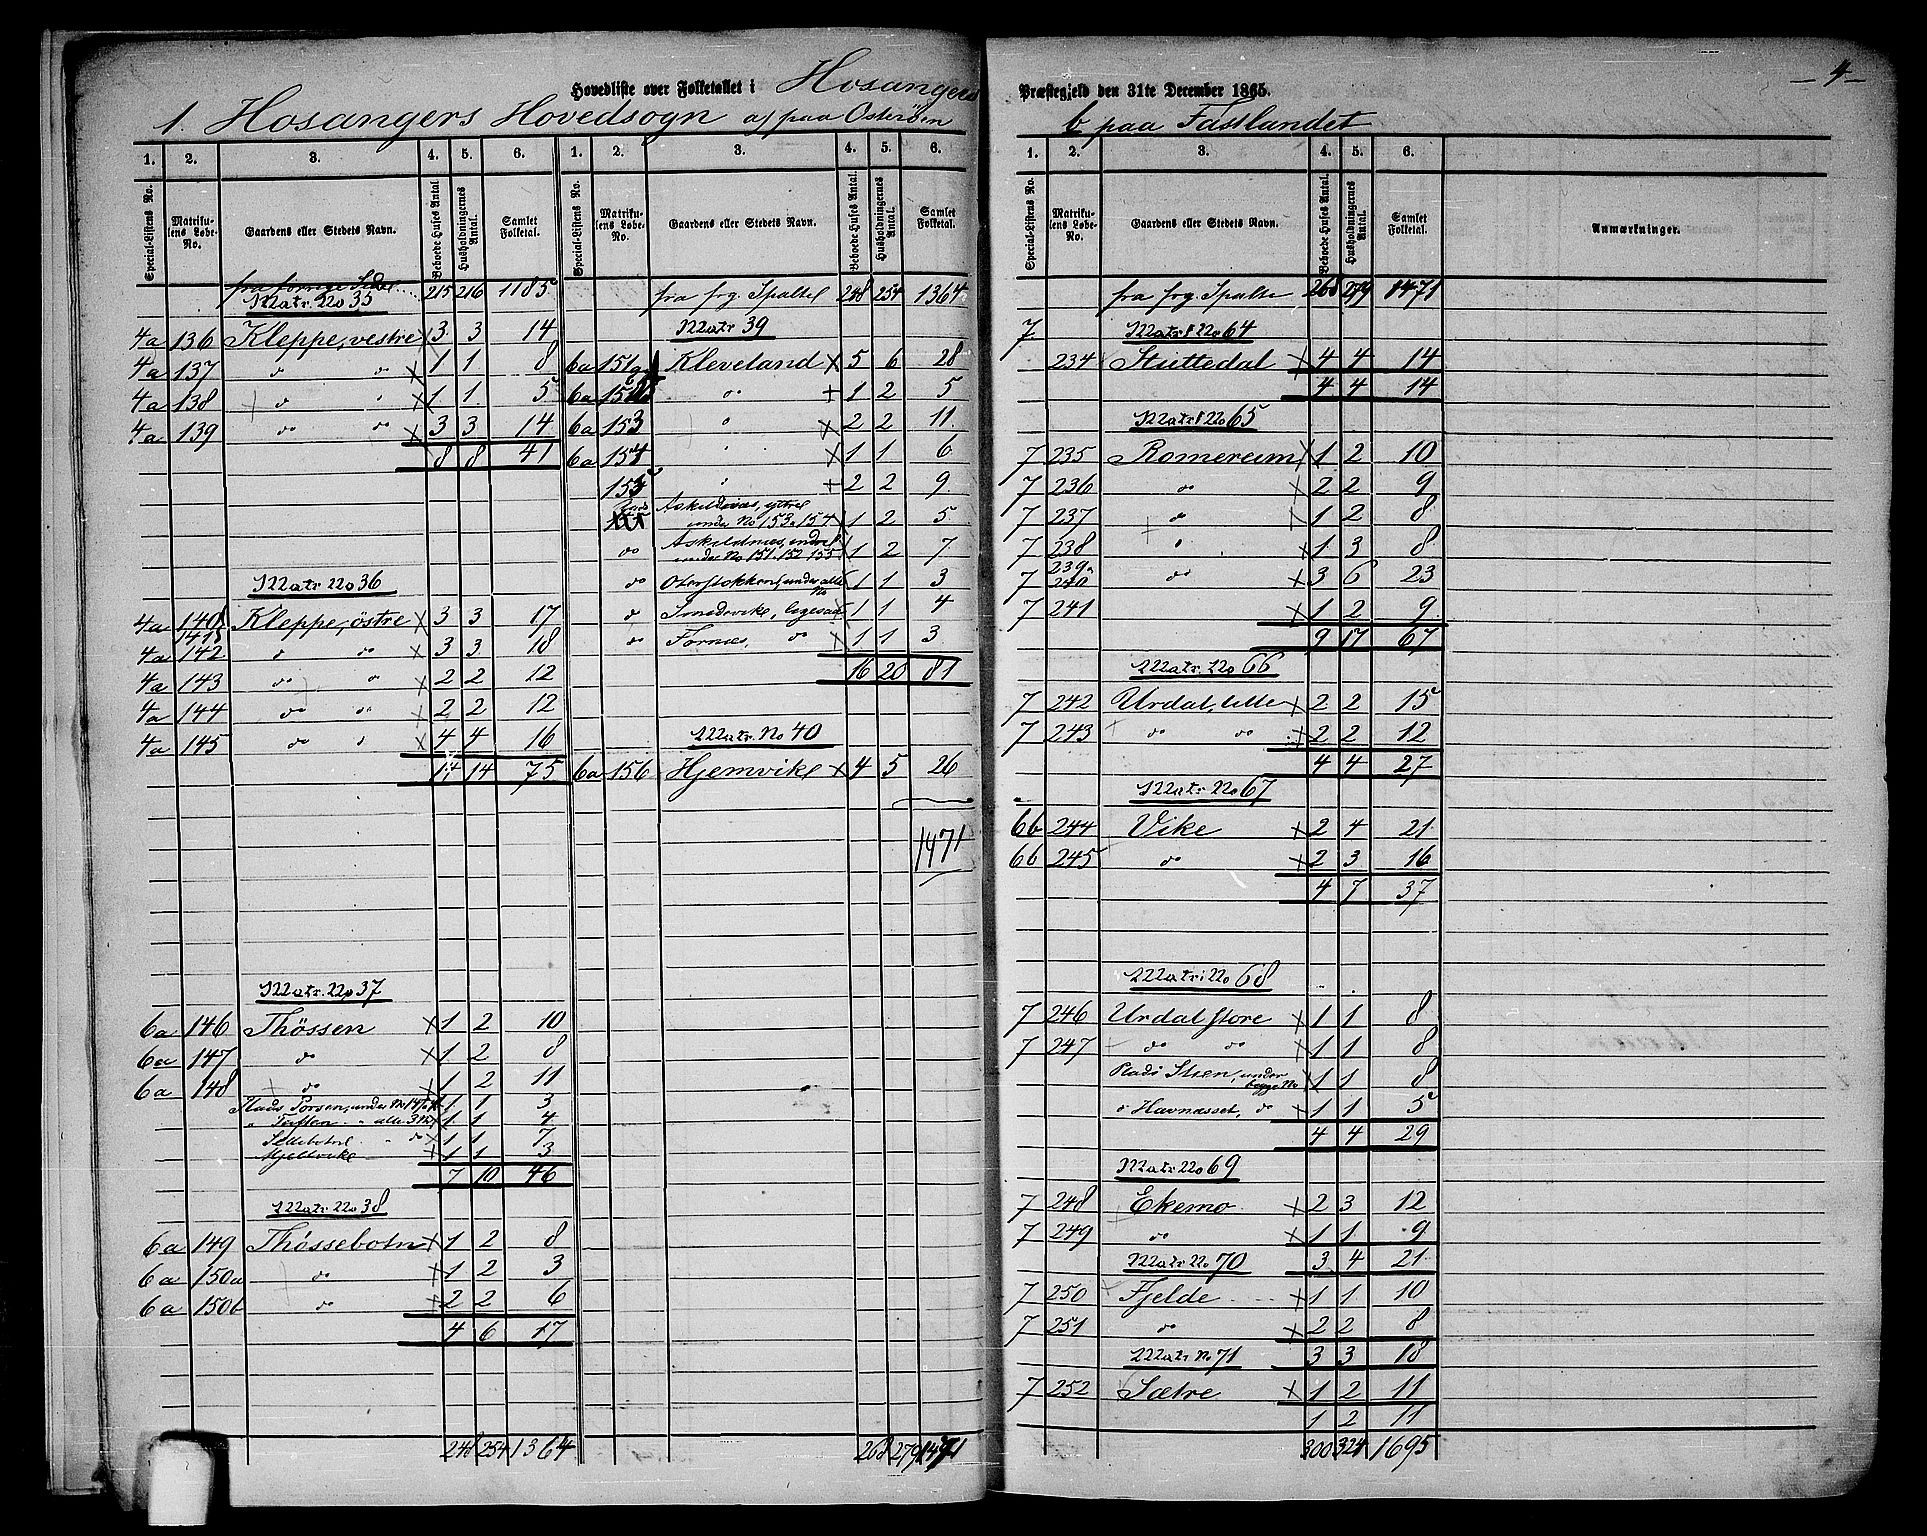 Hovedliste over Folketallet i Hosangers Præstegjeld den 31te December 1865.
— 4 —
1. Hosangers Hovedsogn a) paa Osterøen
b paa Fastlandet
1. 2. 3. 4. 5. 6. 1. 2. 3. 4. 5. 6.
Special-Listens No. Matrikulens Løbe-No. Gaardens eller Stedets Navn. Beboede Huses Antal Husholdningernes Antal. Samlet Folketal. Special-Listens No. Matrikulens Løbe-No. Gaardens eller Stedets Navn. Beboede Huses Antal. Husholdningernes Antal. Samlet Folketal.
fra forrige Side 215 216 1185
Matr. No 35
4a 136 Kleppe, vestre x 3 3 14
4a 137 do do x 1 1 8
4a 138 do do x 1 1 5
4a 139 do do x 3 3 14
8 8 41
Matr No 36
4a 140 141 Kleppe, östre x 3 3 17
4a 142 do do x 3 3 18
4a 143 do do x 2 2 12
4a 144 do do x 2 2 12
4a 145 do do x 4 4 16
14 14 75
Matr. No 37
6a 146 Thössen x 1 2 10
6a 147 do x 1 2 8
6a 148 do 1 2 11
Plads Porsen, under No 147 1 1 3
" Tuften " alle 3 No 1 1 4
Sellebotnl " do x 1 1 7
Mjellvike x 1 1 3
7 10 46
Matr No 38
6a 149 Thössebotn x 1 2 8
6a 150a do x 1 2 3
6a 150b do x 2 2 6
4 6 17
248 254 1364
fra frg. Spaltel 248 254 1364
Matr 39
6a 151 Kleveland x 5 6 28
6a 152 do + 1 2 5
6a 153 " x 2 2 11.
6a 154 " x 1 1 6
155 " + 2 2 9.
Askildnæs, yttrel
under No 153 o 154 x 1 2 5
do Askildnæs, indrel
under No 151. 152. 155 x 1 2 7
do Oterstokken, under alle No 1 1 3
do Smedevike, ligesaa 1 1 4
do Fornæs, do x 1 1 3
16 20 81
Matr. No 40
6a 156 Hjemvike x 4 5 26
1471
268 279 1471
1. 2. 3. 4. 5. 6.
Special-Listens No. Matrikulens Løbe-No. Gaardens eller Stedets Navn. Beboede Huses Antal. Husholdningernes Antal. Samlet Folketal. Anmærkninger.
fra frg. Spalte 268 279 1471
7. Matr No 64
234 Stuttedal x 4 4 14
4 4 14
Matr No 65
7 235 Romereim x 1 2 10
7 236 do x 2 2 9
7 237 do 1 2 8
7 238 " x 1 3 8
7 239 240 do x 3 6 23
7 241 x 1 2 9
9 17 67
Matr. No 66
7 242 Urdal, lille x 2 2 15
7 243 do do x 2 2 12
4 4 27
Matr No 67
6b 244 Vike x 2 4 21
6b 245 do x 2 3 16
4 7 37
Matr: No 68
7 246 Urdal store x 1 1 8
7 247 do do x 1 1 8
Plads Steen, under begge No x 1 1 8
" Havnæsset, do x 1 1 5
4 4 29
Matr No 69
7 248 Ekemo x 2 3 12
7 249 do x 1 1 9
Matr No 70 3 4 21
7 250 Fjelde x 1 1 10
7 251 do x 2 2 8
Matr No 71 3 3 18
7 252 Sætre x 1 2 11
1 2 11
300 324 1695